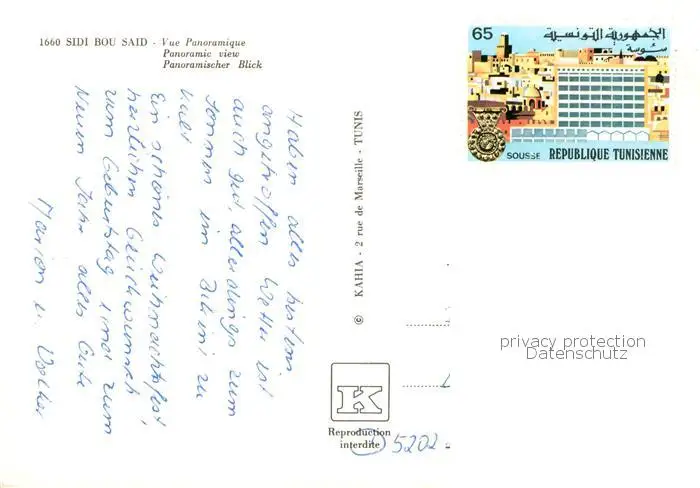 1660 SIDI BOU SAID - Vue Panoramique
Panoramic view
Panoramischer Blick
Haben alles bestens
angetroffen Wetter ist
auch gut, allerdings zum
sonnen im Bikini zu
kalt
Ein schönes Weihnachtsfest,
herzlichen Glückwunsch
zum Geburtstag und zum
Neuen Jahr alles Gute
Marion u. Volker
© KAHIA - 2 rue de Marseille - TUNIS
K
Reproduction
interdite
5202
65
الجمهورية التونسية
سوسة
SOUSSE REPUBLIQUE TUNISIENNE
privacy protection
Datenschutz